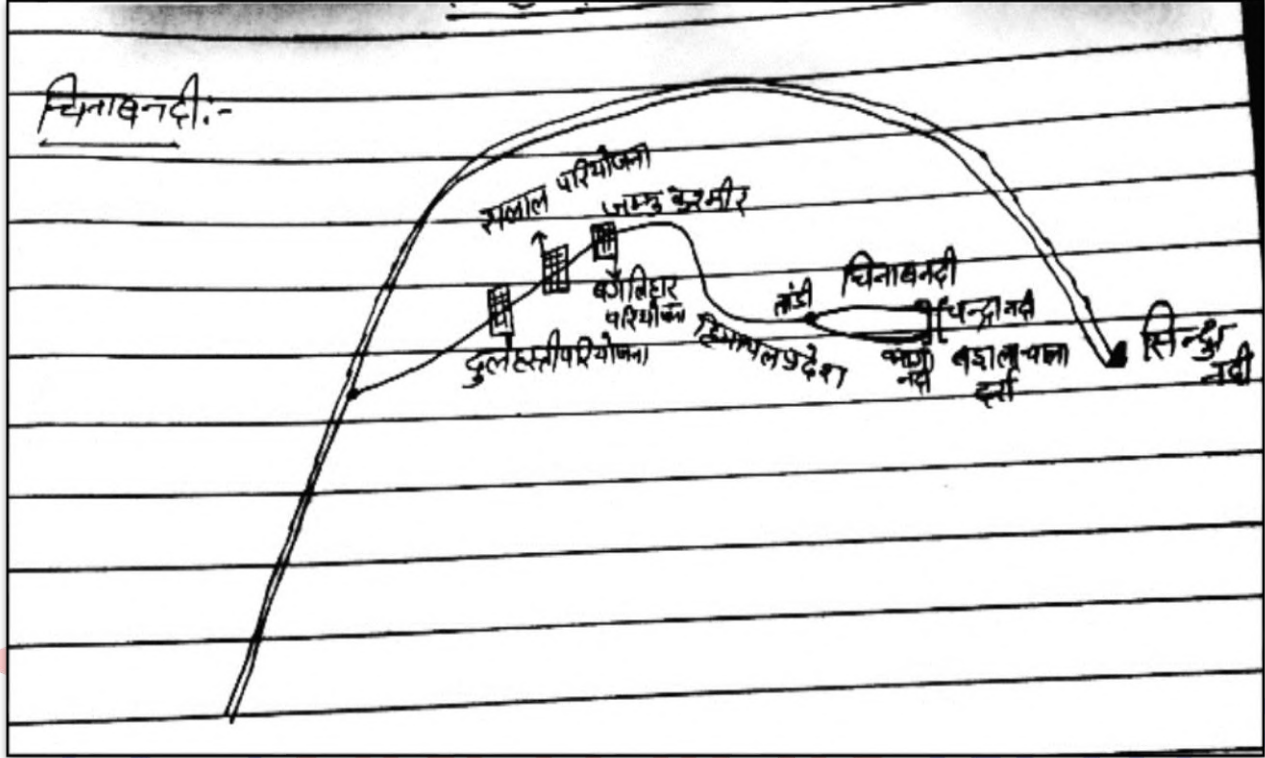 चिनाब नदी:-
सलाल परियोजना
जम्मु कश्मीर
बगलिहार
परियोजना
दुलहस्ती परियोजना
हिमाचल प्रदेश
तांडी
चिनाब नदी
चन्द्रा नदी
भागा
नदी
दर्रा
सिन्धु
नदी